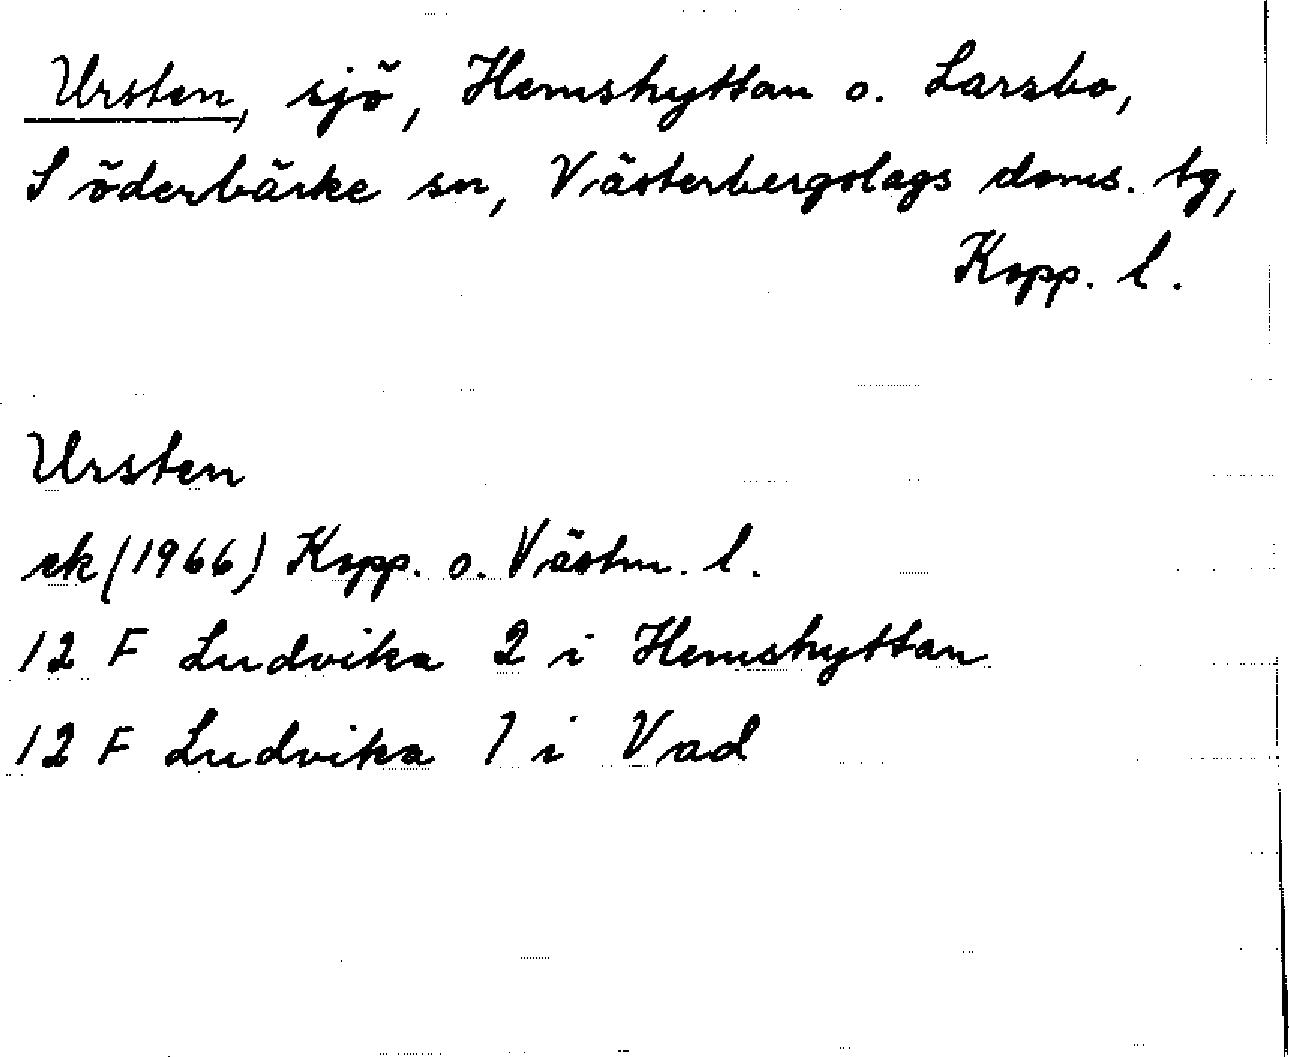 Ursten, sjö, Hemshyttan o. Larsbo,
Söderbärke sn, Västerbergslags doms. tg,
Kopp. l.
Ursten
ek (1966) Kopp. o. Västm. l.
12 F Ludvika 2 i Hemshyttan
12 F Ludvika 1 i Vad